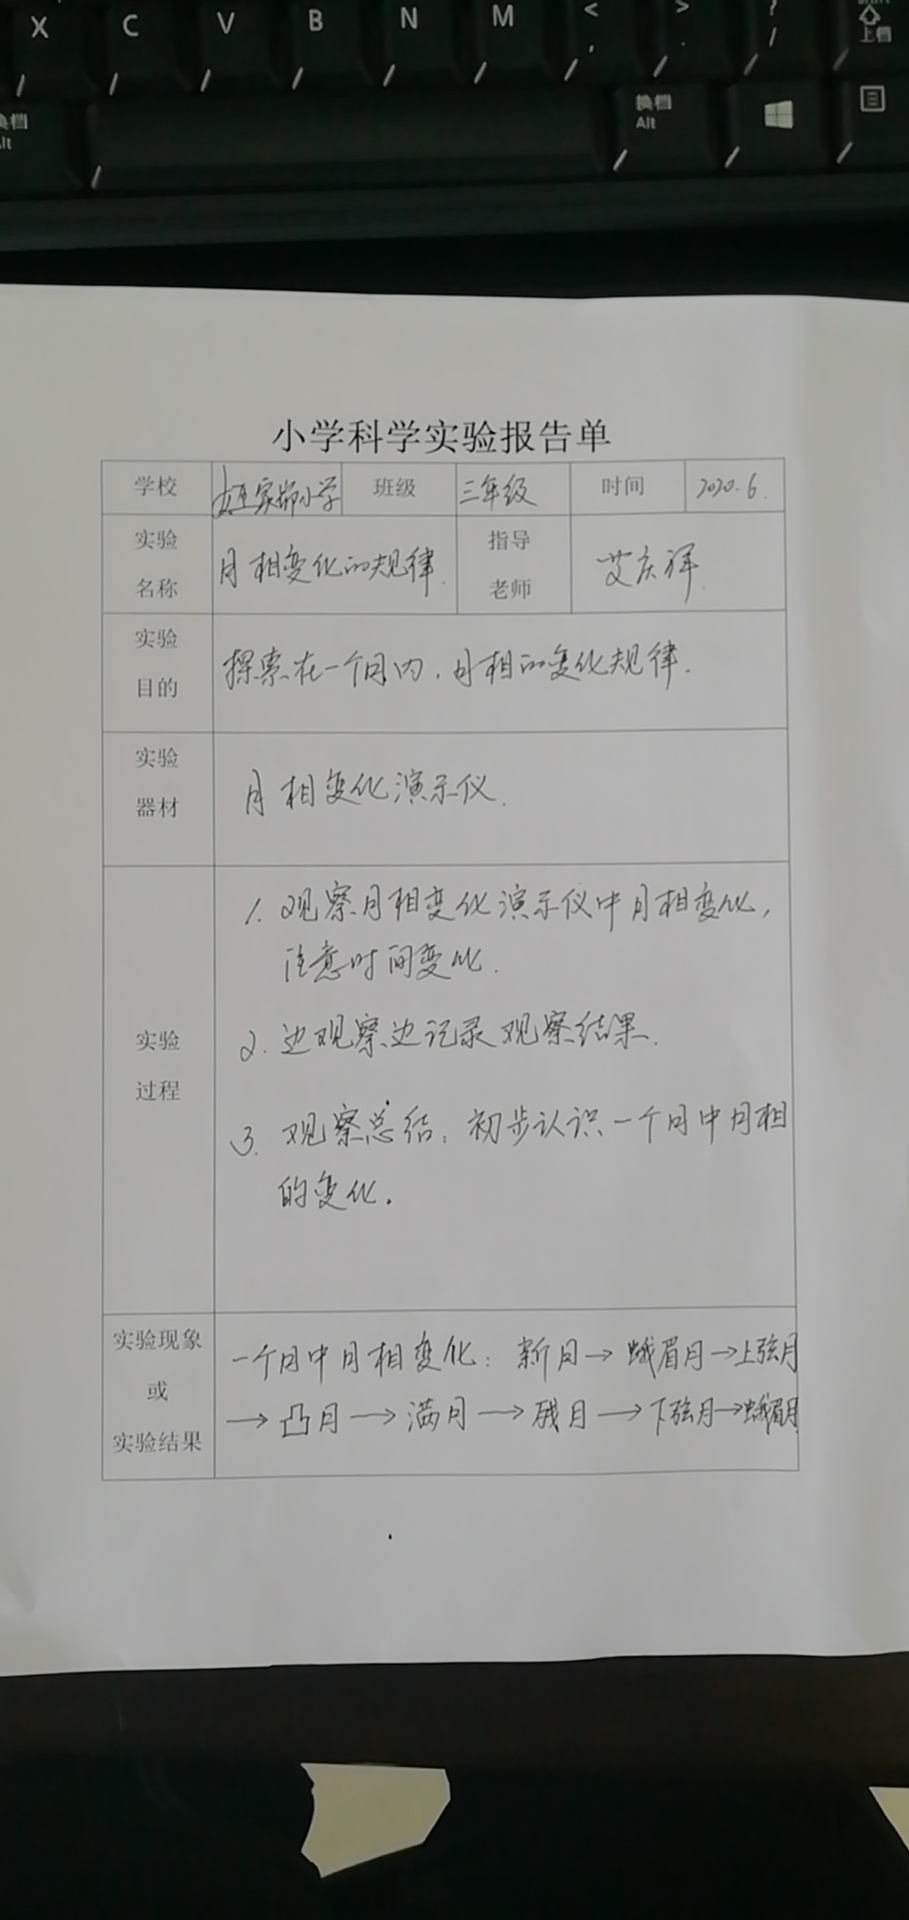 X C V B N M < , > . ? / 上档
换档 Alt 换档 Alt
小学科学实验报告单
学校 家 小学 班级 三年级 时间 2020.6.
实验名称 月相变化的规律. 指导老师 艾庆祥.
实验目的 探索在一个月内,月相的变化规律.
实验器材 月相变化演示仪.
实验过程
1. 观察月相变化演示仪中月相变化,
注意时间变化.
2. 边观察边记录观察结果.
3. 观察总结:初步认识一个月中月相
的变化.
实验现象或实验结果
一个月中月相变化:新月→蛾眉月→上弦月
→凸月→满月→残月→下弦月→蛾眉月